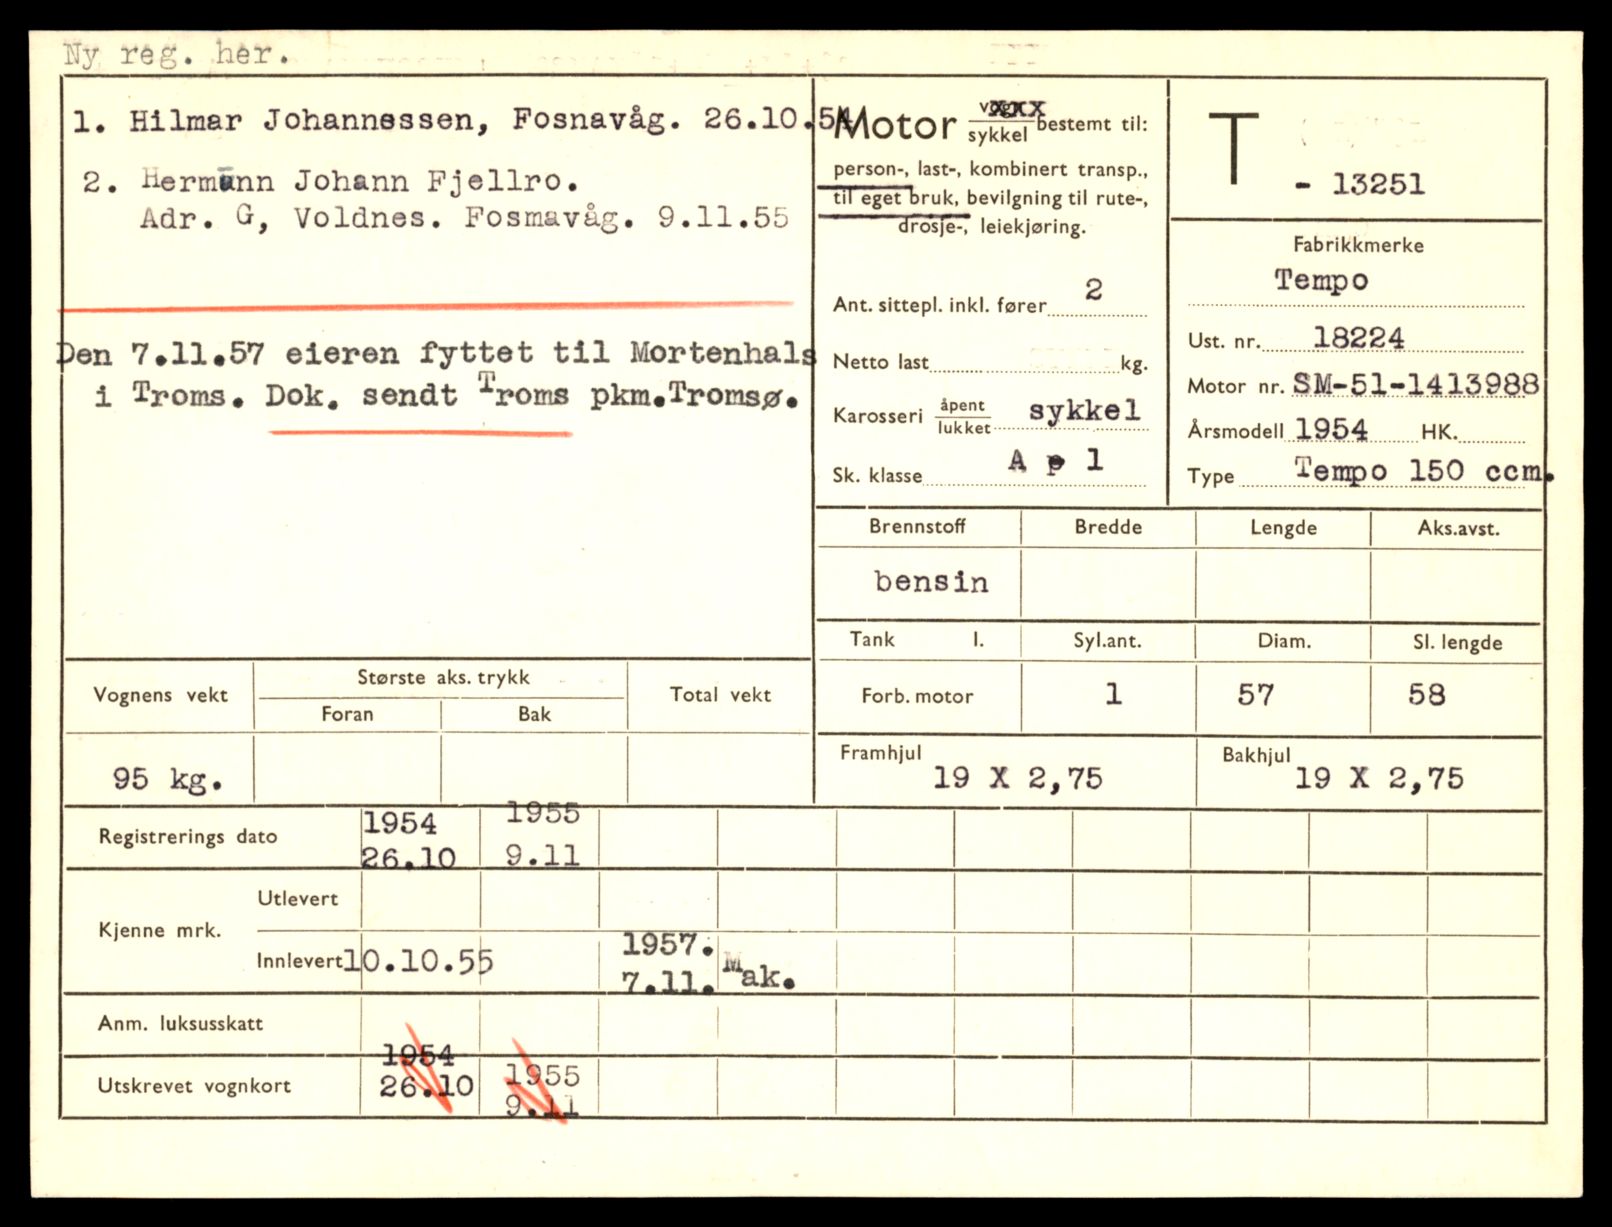 Ny reg. her.
1. Hilmar Johannessen, Fosnavåg. 26.10.54
2. Hermann Johann Fjellro.
Adr. G, Voldnes. Fosmavåg. 9.11.55
Den 7.11.57 eieren fyttet til Mortenhals
i Troms. Dok. sendt Troms pkm.Tromsø.
Motor vogn xxx
sykkel bestemt til:
person-, last-, kombinert transp.,
til eget bruk, bevilgning til rute-,
drosje-, leiekjøring.
Ant. sittepl. inkl. fører 2
Netto last kg.
Karosseri åpent
lukket sykkel
Sk. klasse A p 1
T - 13251
Fabrikkmerke
Tempo
Ust. nr. 18224
Motor nr. SM-51-1413988
Årsmodell 1954 HK.
Type Tempo 150 ccm.
Brennstoff Bredde Lengde Aks.avst.
bensin
Tank l. Syl.ant. Diam. Sl. lengde
Forb. motor 1 57 58
Framhjul 19 X 2,75 Bakhjul 19 X 2,75
Vognens vekt Største aks. trykk Total vekt
Foran Bak
95 kg.
Registrerings dato 1954 1955
26.10 9.11
Kjenne mrk. Utlevert
Innlevert 10.10.55 1957.
7.11. Mak.
Anm. luksusskatt
Utskrevet vognkort 1954 1955
26.10 9.11